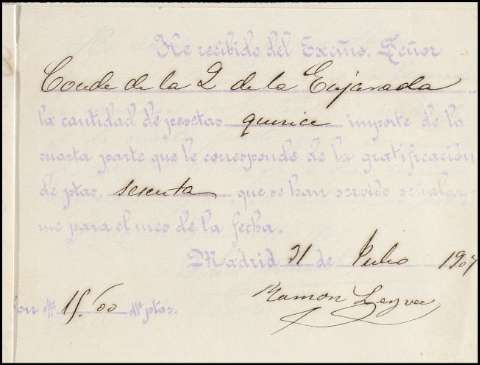 He recibido del Excmo. Señor
Conde de la Q de la Enjarada
la cantidad de pesetas quince importe de la
cuarta parte que le corresponde de la gratificación
de ptas. sesenta que se han servido señalar-
me para el mes de la fecha.
Madrid 31 de Julio 1907
Ramon Leyva
Son 15'00 ptas.